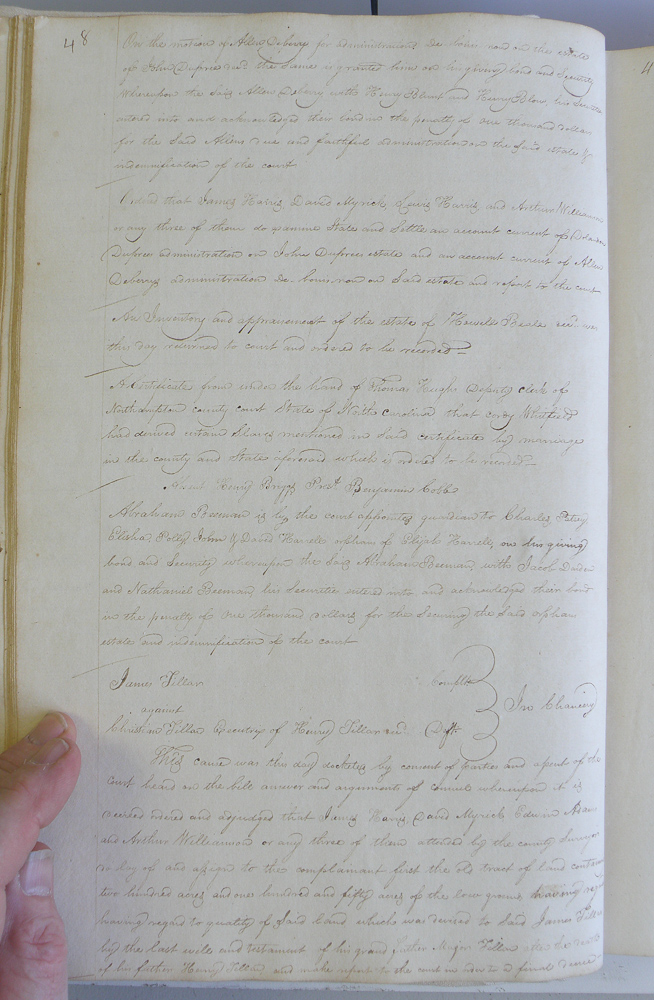 48
On the motion of Allen Deberry for administration De bonis non on the estate
of John Dupree and the same is granted him on his giving bond and Security
Whereupon the Said Allen Deberry with Henry Blunt and Henry Blow his Securities
entered into and acknowledged their bond in the penalty of one thousand dollars
for the Said Allens due and faithful administration on the Said estate &
indemnification of the court
Ordered that James Harris David Myrick Lewis Harris and Arthur Williamson
or any three of them do examine State and Settle an account current of
Duprees administration on John Duprees estate and an account current of Allen
Deberrys administration De bonis non on Said estate and report to the court
An Inventory and appraisement of the estate of Howell Beale decd. was
this day returned to court and ordered to be recorded
A Certificate from under the hand of Thomas Hughes Deputy clerk of
Northampton county court State of North Carolina that Whitfield
had derived certain Slaves mentioned in Said certificate by marriage
in the county and State aforesaid which is ordered to be recorded
Absent Henry Briggs Prest. Benjamin Cobb
Abraham Beeman is by the court appointed guardian to Charles Patsey
Elisha Polly John & David Harrell orphans of Elijah Harrell, on his giving
bond and Security whereupon the Said Abraham Beeman with Jacob Darden
and Nathaniel Beeman his Securities entered into and acknowledged their bond
in the penalty of one thousand dollars for the Securing the Said orphans
estate and indemnification of the court
James Tillar Complt
against In Chancery
Christian Tillar Executrix of Henry Tillar decd. Deft
This cause was this day docketed by consent of parties and of the
court heard on the bill answer and arguments of counsel whereupon it is
decreed ordered and adjudged that James Harris David Myrick Edwin Adams
and Arthur Williamson or any three of them attended by the county Surveyor
do lay of and assign to the complainant first the old tract of land containing
two hundred acres and one hundred and fifty acres of the low grounds having regard
having regard to quality of Said land which was devised to Said James Tillar
by the last will and testament of his grand father Major Tillar after the death
of his father Henry Tillar and make report to the court in order to a final decree